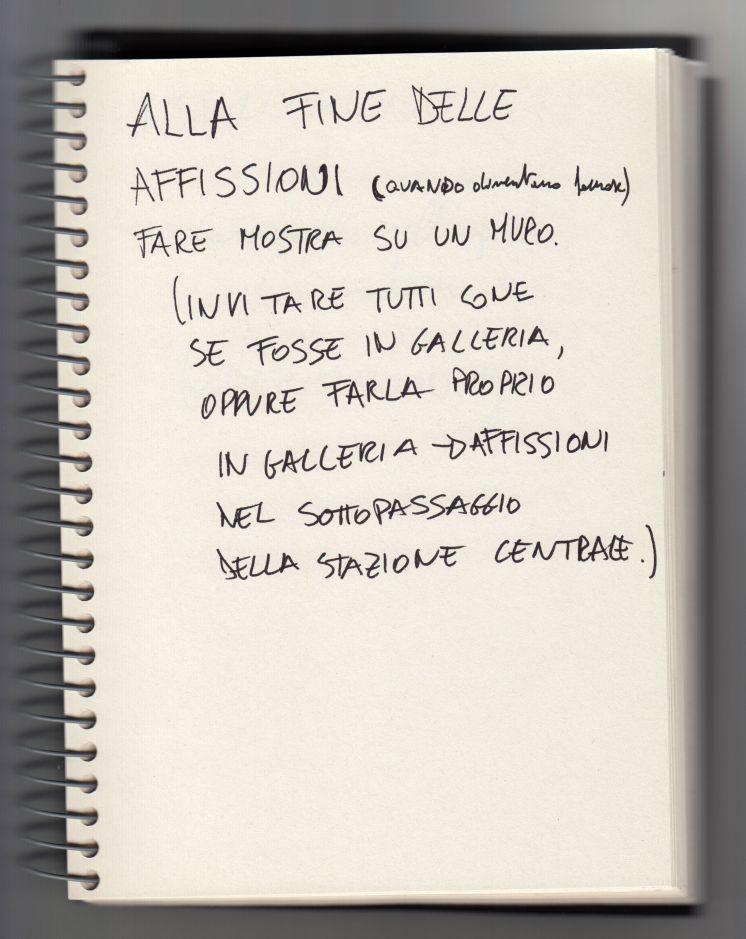 ALLA FINE DELLE
AFFISSIONI (QUANDO diventano famose)
FARE MOSTRA SU UN MURO.
(INVITARE TUTTI COME
SE FOSSE IN GALLERIA,
OPPURE FARLA PROPRIO
IN GALLERIA → AFFISSIONI
NEL SOTTOPASSAGGIO
DELLA STAZIONE CENTRALE.)